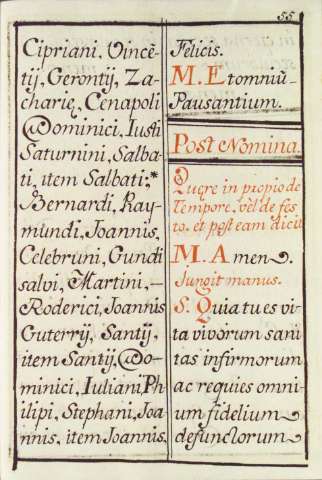 55
Cipriani, Vincẽ
tij, Gerontij, Za
charię, Cenapoli
Dominici, Iusti
Saturnini, Salba
ti, item Salbati;*
Bernardi, Ray
mundi, Joannis,
Celebruni, Gundi
salvi, Martini,
Roderici, Joannis
Guterrij, Santij,
item Santij, Do
minici, Iuliani, Ph
ilipi, Stephani, Joa
nnis, item Joannis.
Felicis.
M. Et omniũ
Pausantium.
Post Nomina.
Quęre in propio de
Tempore, vèl de fes
to, et post eam dicit
M. Amen.
Jungit manus.
S. Quia tu es vi
ta vivorum sani
tas infirmorum
ac requies omni
um fidelium
defunctorum